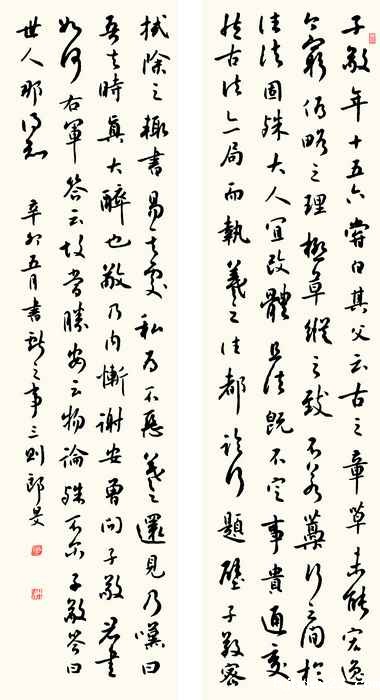 子敬年十五六嘗白其父云古之章草未能宏逸
今窮偽略之理極草縱之致不若藁行之間於
往法固殊大人宜改體且法既不定事貴通變
然古法亦局而執羲之往都臨行題壁子敬密
拭除之輒書易其處私為不惡羲之還見乃嘆曰
吾去時眞大醉也敬乃內慚謝安曾問子敬君書
如何右軍答云故當勝安云物論殊不爾子敬答曰
世人那得知 辛卯五月書獻之事三則郎旻